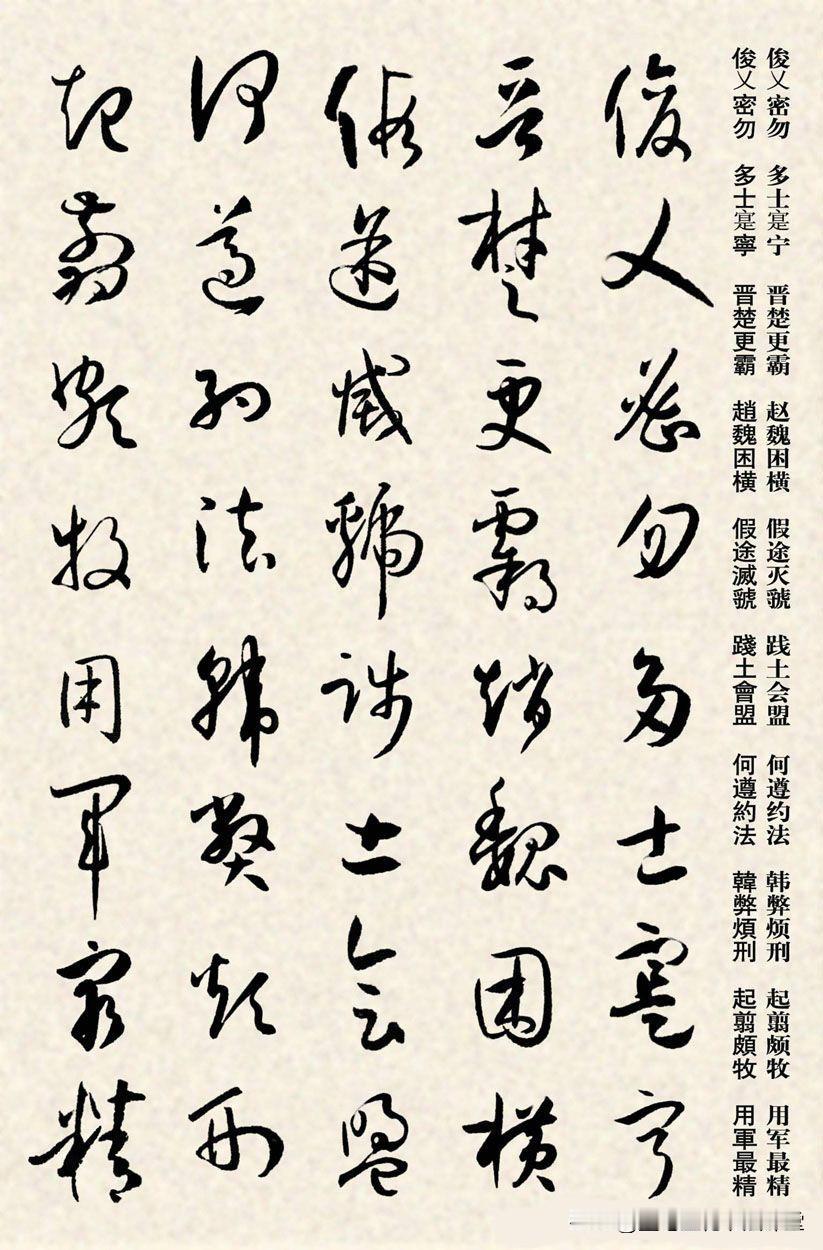 俊乂密勿 多士寔宁 晋楚更霸 赵魏困横 假途灭虢 践土会盟 何遵约法 韩弊烦刑 起翦颇牧 用军最精
俊乂密勿 多士寔寧 晋楚更霸 趙魏困橫 假途滅虢 踐土會盟 何遵約法 韓弊煩刑 起翦頗牧 用軍最精
俊乂密勿多士寔宁
晋楚更霸趙魏困横
假途滅虢践土会盟
何遵約法韓弊煩刑
起翦頗牧用軍最精